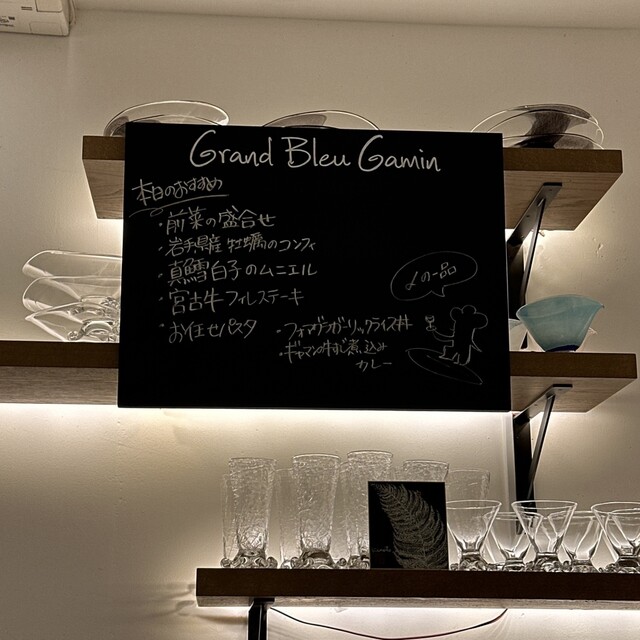 Grand Bleu Gamin
本日のおすすめ
・前菜の盛合せ
・岩手県産 牡蠣のコンフィ
・真鱈白子のムニエル
・宮古牛フィレステーキ
・お任せパスタ
・フォアグラガーリックライス丼
・ギャマンの牛すじ煮込み
カレー
〆の一品